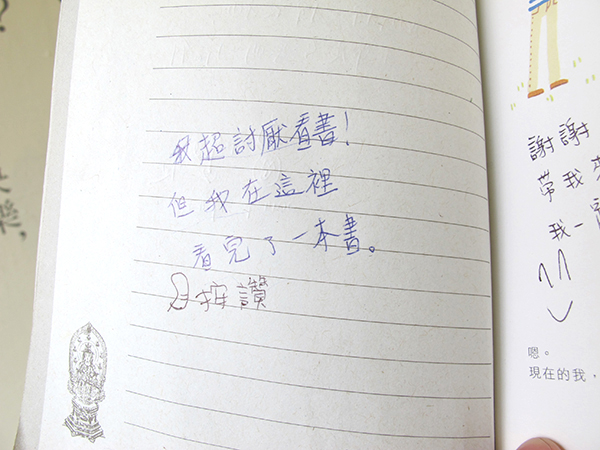 我超討厭看書!
但我在這裡
看完了一本書。
按讚
謝謝
帶我
我一
嗯。
現在的我,